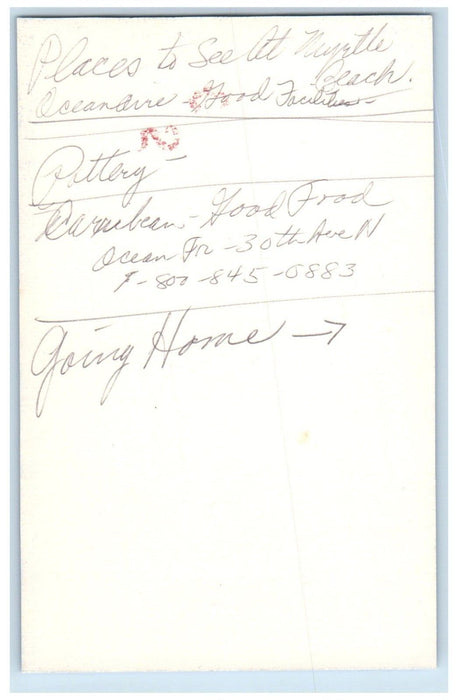 Places to See At Myrtle
Beach.
Oceanaire - Good Facilities -
Pottery -
Carribean - Good Food
Ocean Fr - 30th Ave N
1-800-845-0883
Going Home →